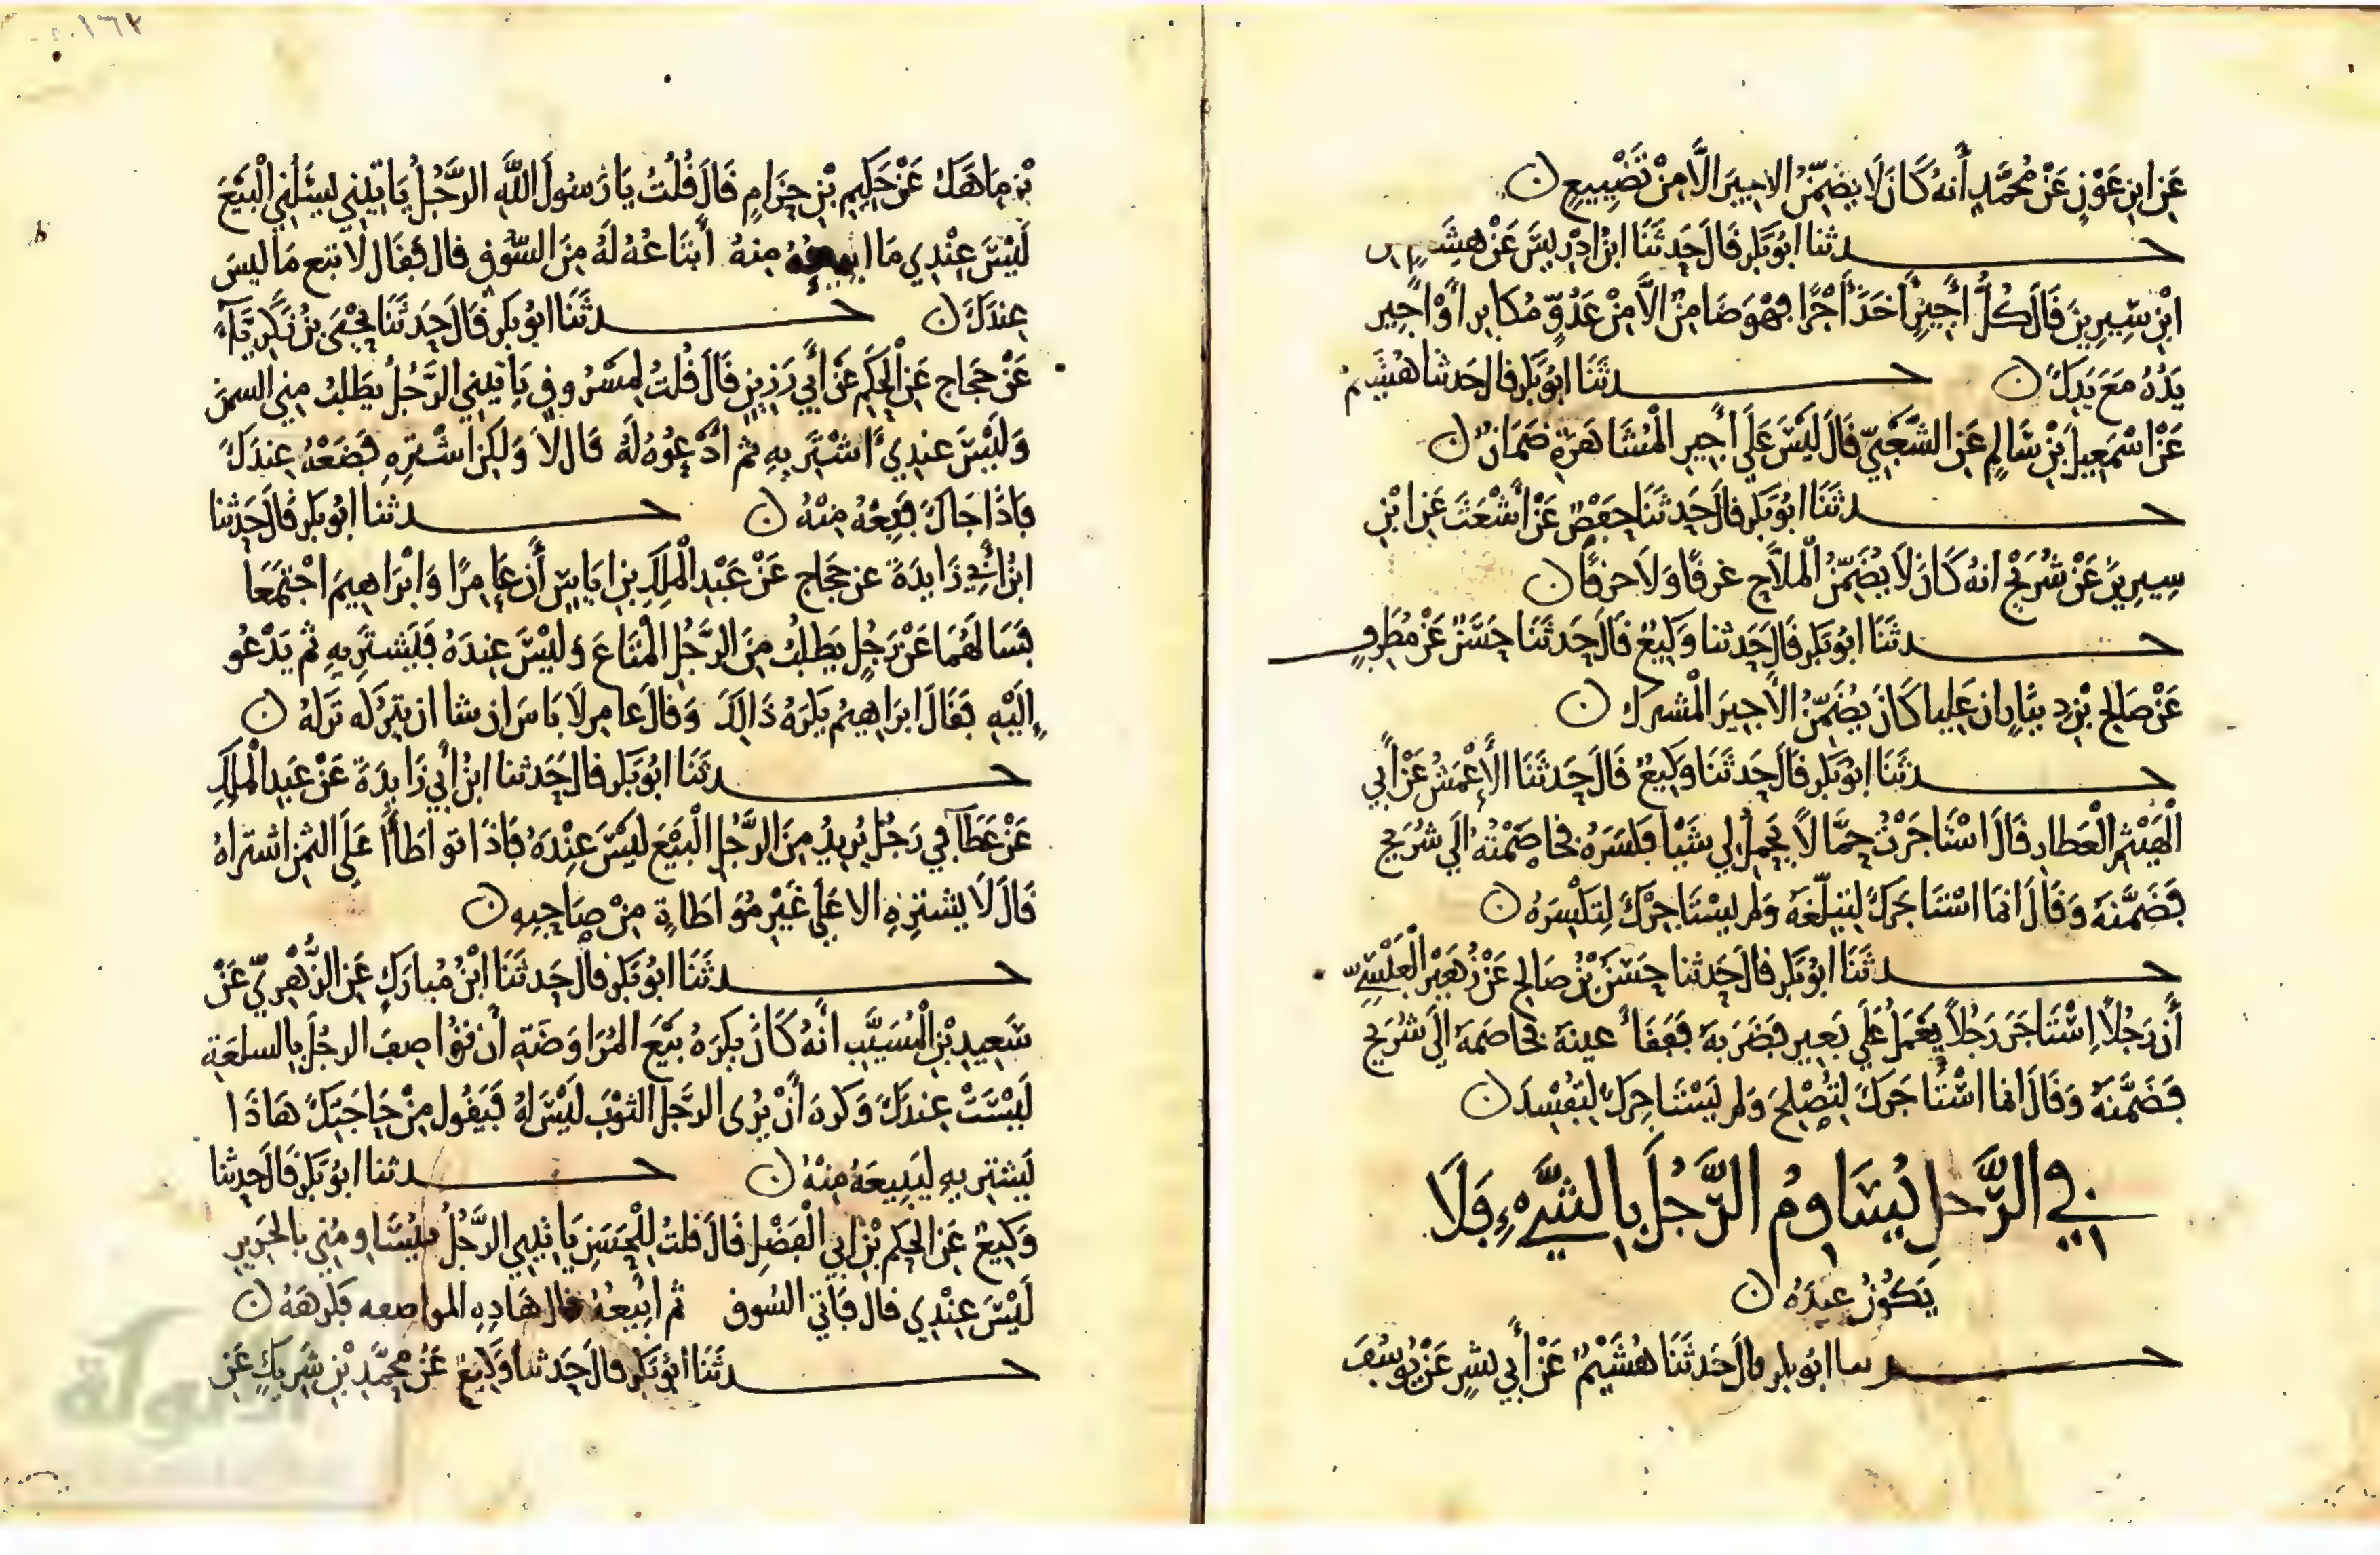 عَن ابن عَوْنٍ عَنْ مُحَمَّدٍ أَنه كَانَ لَا يضَمِّنُ الاجيرَ الَّا مِنْ تَضْيِيعٍ ن
حـــدثنا ابُو بَكر قَالَ حَدثَنَا ابنُ ادْرِيسَ عَنْ هِشَامٍ عن
ابْنِ سِيرِينَ قَالَ كُلُّ أَجِيرٍ أَخَذَ أَجْرًا فهْوَ ضَامِنٌ الَّا مِنْ عَدُوٍّ مُكَابِر أَوْ أَجِير
يَدُهُ مَعَ يَدِكَ ن حـــدثَنَا ابُو بَكر قال حَدثنا هُشَيم
عَنْ اسْمَعِيلَ بْنِ سَالِمٍ عَنِ الشَّعْبِيّ قَالَ لَيْسَ عَلَى أَجِيرِ الْمُشَاهَرَةِ ضَمَانٌ ن
حـــدثَنَا ابُو بَكر قالَ حَدثَنَا حَفْصٌ عَنْ أَشْعَثَ عَنِ ابْنِ
سِيرِينَ عَنْ شُرَيْحٍ انهُ كَانَ لَا يُضَمِّنُ الْملاَّح غرقًا وَلَا حرقًا ن
حـــدثَنَا ابُو بَكر قَالَ حَدثنا وَكِيعٌ قَالَ حَدثَنَا حَسَنٌ عَنْ مُطَرِفٍ
عَنْ صَالح بْنِ دِينَارٍ ان عَلِيا كَانَ يُضَمِّنُ الأَجِيرَ الْمُشترك ن
حـــدثَنَا ابُو بَكر قالَ حَدثَنَا وَكِيعٌ قَالَ حَدثَنَا الْأَعْمَشُ عَنْ أَبِي
الْهَيْثَمِ الْعَطارِ قَالَ اسْتَاجَرْتُ حَمَّالًا يَحْمِلُ لِي شَيْا فَكَسَرَهُ فخَاصَمْتُهُ الَى شُرَيْحٍ
فَضَمَّنَهُ وَقَالَ انمَا اسْتَاجَرَكَ لِتبلّغَهُ وَلم يسْتَاجِرْكَ لِتَكْسِرَهُ ن
حـــدثَنَا ابُو بَكر قالَ حَدثنا حَسَنُ بْنُ صَالِح عَنْ زُهَيْر الْعَبْسِيّ
أَن رَجُلاً اِسْتَاجَرَ رَجُلاً يَعْمَلُ عَلَى بَعِيرٍ فضَرَبَهُ فَفَقَأَ عينَهُ فخَاصَمَهُ الَى شُرَيْحٍ
فَضَمَّنَهُ وَقَالَ انما اسْتَاجَرَكَ لِتُصْلِحَ وَلم يَسْتَاجِركَ لِتفْسِدَ ن
في الرَّجلِ يُسَاوِمُ الرَّجُلَ بِالشَّيْءِ فَلَا
يَكُونُ عِندَهُ ن
حـــدثنا ابُو بكر قالَ حَدثَنَا هُشَيْمٌ عَنْ أَبِي بشرٍ عَنْ يُوسُفَ
بْنِ مَاهَكَ عَنْ حَكِيمِ بْنِ حِزَامٍ قَالَ قُلْتُ يَا رَسُولَ اللَّهِ الرَّجُلُ يَاتِينِي يَسْئَلُنِي الْبَيْعَ
لَيْسَ عِنْدِي مَا ابيعُهُ مِنهُ أَبْتَاعُهُ لَهُ مِنَ السُّوقِ قال فَقَال لَا تبع مَا ليسَ
عِندَكَ ن حـــدثَنَا ابُو بَكر قَالَ حَدثَنَا يَحْيَى بْنُ زَكَرِيَّآءَ
عَنْ حَجَاج عَنِ الْحَكَمِ عَنْ أَبِي رَزِينٍ قَالَ قُلْتُ لِمَسْرُوقٍ يَاتِينِي الرَّجُلُ يطَلبُ مِنِي السمنَ
وَلَيْسَ عندِي أَشْتَرِيهِ ثم أَدْعُوهُ لَهُ قَالَ لاَ وَلَكِنْ اشْتَرِهِ فَضَعْهُ عِندَكَ
فَاذَا جَاكَ فَبِعْهُ مِنْهُ ن حـــدثنا ابُو بَكر قالَ حَدثنا
ابْنُ أَبِي زَايِدَةَ عن حَجَاج عَنْ عَبْدِ الْمَلِكِ بن ايَاسٍ أَن عَامِرًا وَابْرَاهِيمَ اجْتَمَعَا
فَسَالَهُمَا عَنْ رَجُلٍ يَطلُبُ مِنَ الرَّجُلِ الْمَتَاعَ وَليْسَ عِندَهُ فَيَشتَرِيهِ ثم يَدْعُو
إِلَيْهِ فَقَالَ ابرَاهِيمُ يَكرَهُ ذَالِكَ وَقَالَ عَامِر لَا بَاسَ ان شا ان يتركه تَركهُ ن
حـــدثَنَا ابُو بَكر قالَ حَدثنا ابنُ أَبِي زَايِدَةَ عَنْ عَبدِ الْمَلِكِ
عَنْ عَطَآ فِي رَجُلٍ يُرِيدُ مِنَ الرَّجُلِ الْبَيْعَ لَيْسَ عِنْدَهُ فَاذَا تواطَأَا عَلَى الثمنِ اشتراهُ
قَالَ لَا يشتَرِهِ الا عَلَى غَيْرِ مُوَاطَاةٍ مِنْ صَاحِبِهِ ن
حـــدثَنَا ابُو بَكر قالَ حَدثَنَا ابْنُ مُبارَكٍ عَنِ الزُّهْرِيِّ عَنْ
سَعِيدِ بْنِ الْمُسَيَّبِ أنَّهُ كَانَ يَكرَهُ بَيْعَ المُرَاوَضَةِ أَن تُوَاصِفَ الرجُلَ بِالسلعَةِ
لَيْسَتْ عِندَكَ وَكَرِهَ أَنْ يَرَى الرَّجل الثوْبَ لَيْسَ لهُ فَيَقُول مِنْ حَاجَتِكَ هَاذَا
لِيشتَرِيهِ لِيَبِيعَهُ مِنْهُ ن حـــدثنا ابُو بَكر قَالَ حَدثنا
وَكِيعٌ عَنِ الحَكمِ بْنِ ابِي الْفَضْلِ قَالَ قلتُ لِلْحَسَنِ يَاتِينِي الرَّجُلُ فيُسَاومُنِي بالحَرِيرِ
لَيْسَ عِنْدِي قال فَاتِي السُوقَ ثم ابِيعُهُ قال هَاذِهِ المواصفه فكرهَهُ ن
حـــدثَنَا ابُو بَكر قالَ حَدثنا وَكِيعٌ عَنْ مُحَمَّدِ بْنِ شَرِيكٍ عَن